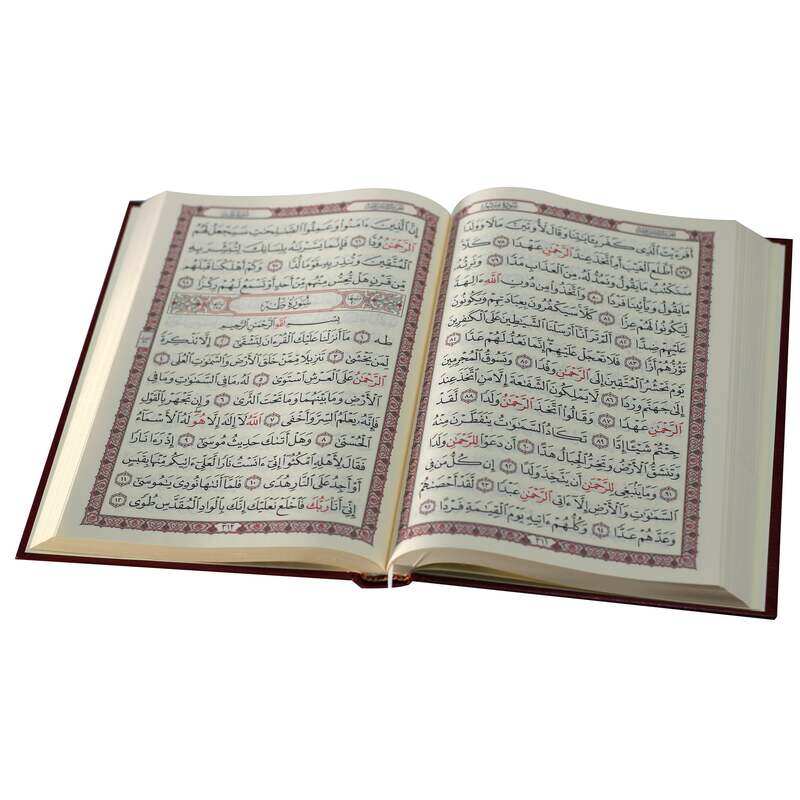 أَفَرَءَيْتَ ٱلَّذِى كَفَرَ بِـَٔايَـٰتِنَا وَقَالَ لَأُوتَيَنَّ مَالًا وَوَلَدًا
٧٧ أَطَّلَعَ ٱلْغَيْبَ أَمِ ٱتَّخَذَ عِندَ ٱلرَّحْمَـٰنِ عَهْدًا ٧٨ كَلَّا
سَنَكْتُبُ مَا يَقُولُ وَنَمُدُّ لَهُۥ مِنَ ٱلْعَذَابِ مَدًّا ٧٩ وَنَرِثُهُۥ
مَا يَقُولُ وَيَأْتِينَا فَرْدًا ٨٠ وَٱتَّخَذُوا۟ مِن دُونِ ٱللَّهِ ءَالِهَةً
لِّيَكُونُوا۟ لَهُمْ عِزًّا ٨١ كَلَّا سَيَكْفُرُونَ بِعِبَادَتِهِمْ وَيَكُونُونَ
عَلَيْهِمْ ضِدًّا ٨٢ أَلَمْ تَرَ أَنَّآ أَرْسَلْنَا ٱلشَّيَـٰطِينَ عَلَى ٱلْكَـٰفِرِينَ
تَؤُزُّهُمْ أَزًّا ٨٣ فَلَا تَعْجَلْ عَلَيْهِمْ إِنَّمَا نَعُدُّ لَهُمْ عَدًّا ٨٤
يَوْمَ نَحْشُرُ ٱلْمُتَّقِينَ إِلَى ٱلرَّحْمَـٰنِ وَفْدًا ٨٥ وَنَسُوقُ ٱلْمُجْرِمِينَ
إِلَىٰ جَهَنَّمَ وِرْدًا ٨٦ لَّا يَمْلِكُونَ ٱلشَّفَـٰعَةَ إِلَّا مَنِ ٱتَّخَذَ عِندَ
ٱلرَّحْمَـٰنِ عَهْدًا ٨٧ وَقَالُوا۟ ٱتَّخَذَ ٱلرَّحْمَـٰنُ وَلَدًا ٨٨ لَّقَدْ
جِئْتُمْ شَيْـًٔا إِدًّا ٨٩ تَكَادُ ٱلسَّمَـٰوَٰتُ يَتَفَطَّرْنَ مِنْهُ
وَتَنشَقُّ ٱلْأَرْضُ وَتَخِرُّ ٱلْجِبَالُ هَدًّا ٩٠ أَن دَعَوْا۟ لِلرَّحْمَـٰنِ وَلَدًا
٩١ وَمَا يَنۢبَغِى لِلرَّحْمَـٰنِ أَن يَتَّخِذَ وَلَدًا ٩٢ إِن كُلُّ مَن فِى
ٱلسَّمَـٰوَٰتِ وَٱلْأَرْضِ إِلَّآ ءَاتِى ٱلرَّحْمَـٰنِ عَبْدًا ٩٣ لَّقَدْ أَحْصَىٰهُمْ
وَعَدَّهُمْ عَدًّا ٩٤ وَكُلُّهُمْ ءَاتِيهِ يَوْمَ ٱلْقِيَـٰمَةِ فَرْدًا ٩٥
٣١١
إِنَّ ٱلَّذِينَ ءَامَنُوا۟ وَعَمِلُوا۟ ٱلصَّـٰلِحَـٰتِ سَيَجْعَلُ لَهُمُ
ٱلرَّحْمَـٰنُ وُدًّا ٩٦ فَإِنَّمَا يَسَّرْنَـٰهُ بِلِسَانِكَ لِتُبَشِّرَ بِهِ
ٱلْمُتَّقِينَ وَتُنذِرَ بِهِۦ قَوْمًا لُّدًّا ٩٧ وَكَمْ أَهْلَكْنَا قَبْلَهُم
مِّن قَرْنٍ هَلْ تُحِسُّ مِنْهُم مِّنْ أَحَدٍ أَوْ تَسْمَعُ لَهُمْ رِكْزًۢا ٩٨
سُورَةُ طه
بِسْمِ ٱللَّهِ ٱلرَّحْمَـٰنِ ٱلرَّحِيمِ
طه ١ مَآ أَنزَلْنَا عَلَيْكَ ٱلْقُرْءَانَ لِتَشْقَىٰٓ ٢ إِلَّا تَذْكِرَةً
لِّمَن يَخْشَىٰ ٣ تَنزِيلًا مِّمَّنْ خَلَقَ ٱلْأَرْضَ وَٱلسَّمَـٰوَٰتِ ٱلْعُلَى ٤
ٱلرَّحْمَـٰنُ عَلَى ٱلْعَرْشِ ٱسْتَوَىٰ ٥ لَهُۥ مَا فِى ٱلسَّمَـٰوَٰتِ وَمَا فِى
ٱلْأَرْضِ وَمَا بَيْنَهُمَا وَمَا تَحْتَ ٱلثَّرَىٰ ٦ وَإِن تَجْهَرْ بِٱلْقَوْلِ
فَإِنَّهُۥ يَعْلَمُ ٱلسِّرَّ وَأَخْفَى ٧ ٱللَّهُ لَآ إِلَـٰهَ إِلَّا هُوَ لَهُ ٱلْأَسْمَآءُ
ٱلْحُسْنَىٰ ٨ وَهَلْ أَتَىٰكَ حَدِيثُ مُوسَىٰٓ ٩ إِذْ رَءَا نَارًا
فَقَالَ لِأَهْلِهِ ٱمْكُثُوٓا۟ إِنِّىٓ ءَانَسْتُ نَارًا لَّعَلِّىٓ ءَاتِيكُم مِّنْهَا بِقَبَسٍ
أَوْ أَجِدُ عَلَى ٱلنَّارِ هُدًى ١٠ فَلَمَّآ أَتَىٰهَا نُودِىَ يَـٰمُوسَىٰٓ ١١
إِنِّىٓ أَنَا۠ رَبُّكَ فَٱخْلَعْ نَعْلَيْكَ إِنَّكَ بِٱلْوَادِ ٱلْمُقَدَّسِ طُوًى ١٢
٣١٢